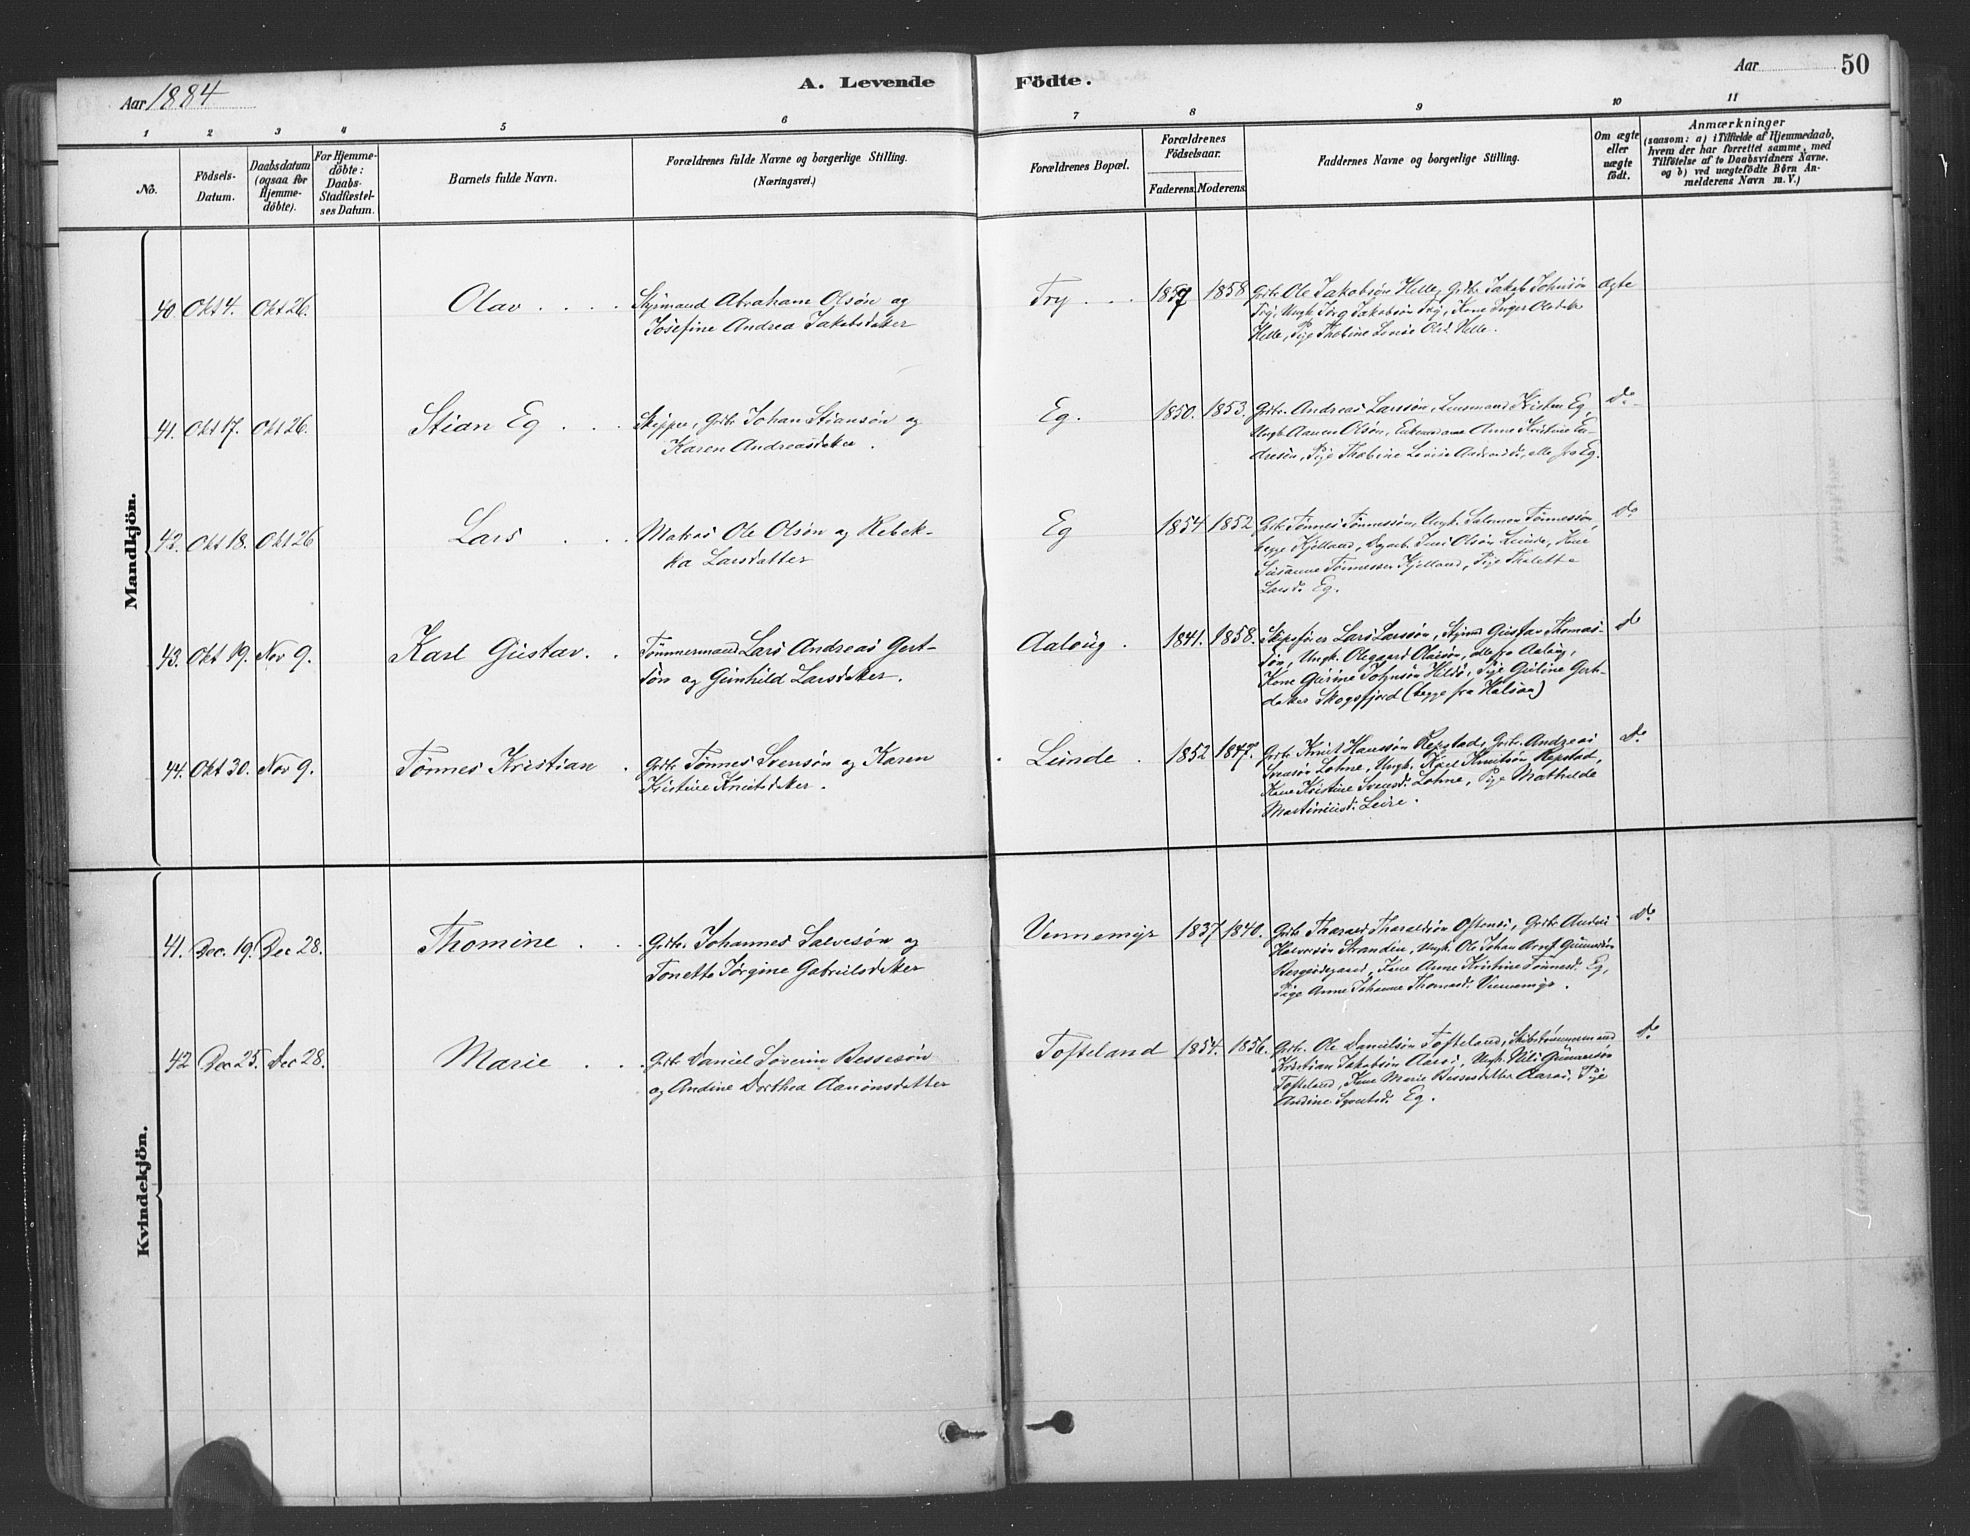 Aar 1884
A. Levende Födte.
Aar 50
1 2 3 4 5 6 7 8 9 10 11
No.
Födsels-Datum.
Daabsdatum (ogsaa for Hjemme-döbte).
For Hjemme-döbte: Daabs-Stadfæstel-ses Datum.
Barnets fulde Navn.
Forældrenes fulde Navne og borgerlige Stilling.
(Næringsvei.)
Forældrenes Bopæl.
Forældrenes Födselsaar.
Faderens. Moderens.
Faddernes Navne og borgerlige Stilling.
Om ægte eller uægte födt.
Anmærkninger
(saasom: a) i Tilfælde af Hjemmedaab,
hvem der har forrettet samme, med
Tilföielse af to Daabsvidners Navne.
og b) ved uægtefödte Börn An-
melderens Navn m.V.)
Mandkjön.
40. Okt 4. Okt 26. Olav Abraham Olsön og
Josefine Andrea Jakobsdatter
Try 1857 1858 Gdbr Ole Jakobsön Helle, Gdbr Jakob Johnsön
Try, Ungk. Jakobsön Try, Kone Inger Olsdatter
Helle, Pige Thobine Lovise Olsd. Helle.
ægte
41. Okt 17. Okt 26. Stian Eg Skipper, Gdbr Johan Stiansön og
Karen Andreasdatter.
Eg. 1850. 1853. Gdbr. Andreas Larssön, Lensmand Kristen Eg,
Ungk. Aanen Olsön, Anne Kristine
Pige Thobine Lovise alle fra Eg.
do
42. Okt 18. Okt 26 Lars Matros Ole Olsön og Rebek-
ka Larsdatter
Eg 1854 1852 Gdbr Tönnes Tönnessön, Ungk. Salomon Tönnessön,
begge Kjelland, Olsön Lunde, Kone
Susanne Tönnessen Kjelland, Pige Thalette
Larsd. Eg.
do
43. Okt 19. Nov 9. Karl Gustav. Tömmermand Lars Andreas Gert-
sön og Gunhild Larsdatter.
Aalöug. 1841. 1858. Skipsförer Lars Larssön, Styrmd Gustav Thomas-
sön, Ungk. Olegaard Olaisön, alle fra
Kone Gurine Johnsön Hildö, Pige Guline Gert-
datter Skogsfjord (begge fra Halsaa)
do
44. Okt 30. Nov 9. Tönnes Kristian Gdbr Tönnes Svensön og Karen
Kristine Knutsdatter.
Lunde 1852 1847. Gdbr. Knut Hanssön Repstad, Gdbr. Andreas
Svensön Lohne, Ungk. Karl Knutsön Repstad,
Kone Kristine Svensd. Lohne, Pige Mathilde
Martiniusd. Leire.
do
Kvindekjön.
41. Dec. 19. Dec 28. Thomine Gdbr. Johannes Salvesön og
Tonette Jörgine Gabrielsdatter
Vennemyr 1837 1840. Gdbr Tharald Tharaldsön Gdbr. Andreas
Halvorsön Stranden, Ungk. Ole Johan
Kone Anne Kristine Tönnesd. Eg,
Pige Anne Johanne Thomasd. Vennemyr.
do
42 Dec 25. Dec 28. Marie Gdbr Daniel Severin Bessesön
og Andine Dorthea Aanonsdatter
Tofteland 1854. 1856. Gdbr. Ole Danielsön Tofteland, Skibstömmermand
Kristian Jakobsön Aaros, Ungk. Nils Gunnarsön
Tofteland, Kone Marie Bessesdatter Aaros, Pige
Andine Syvertsd. Eg.
do